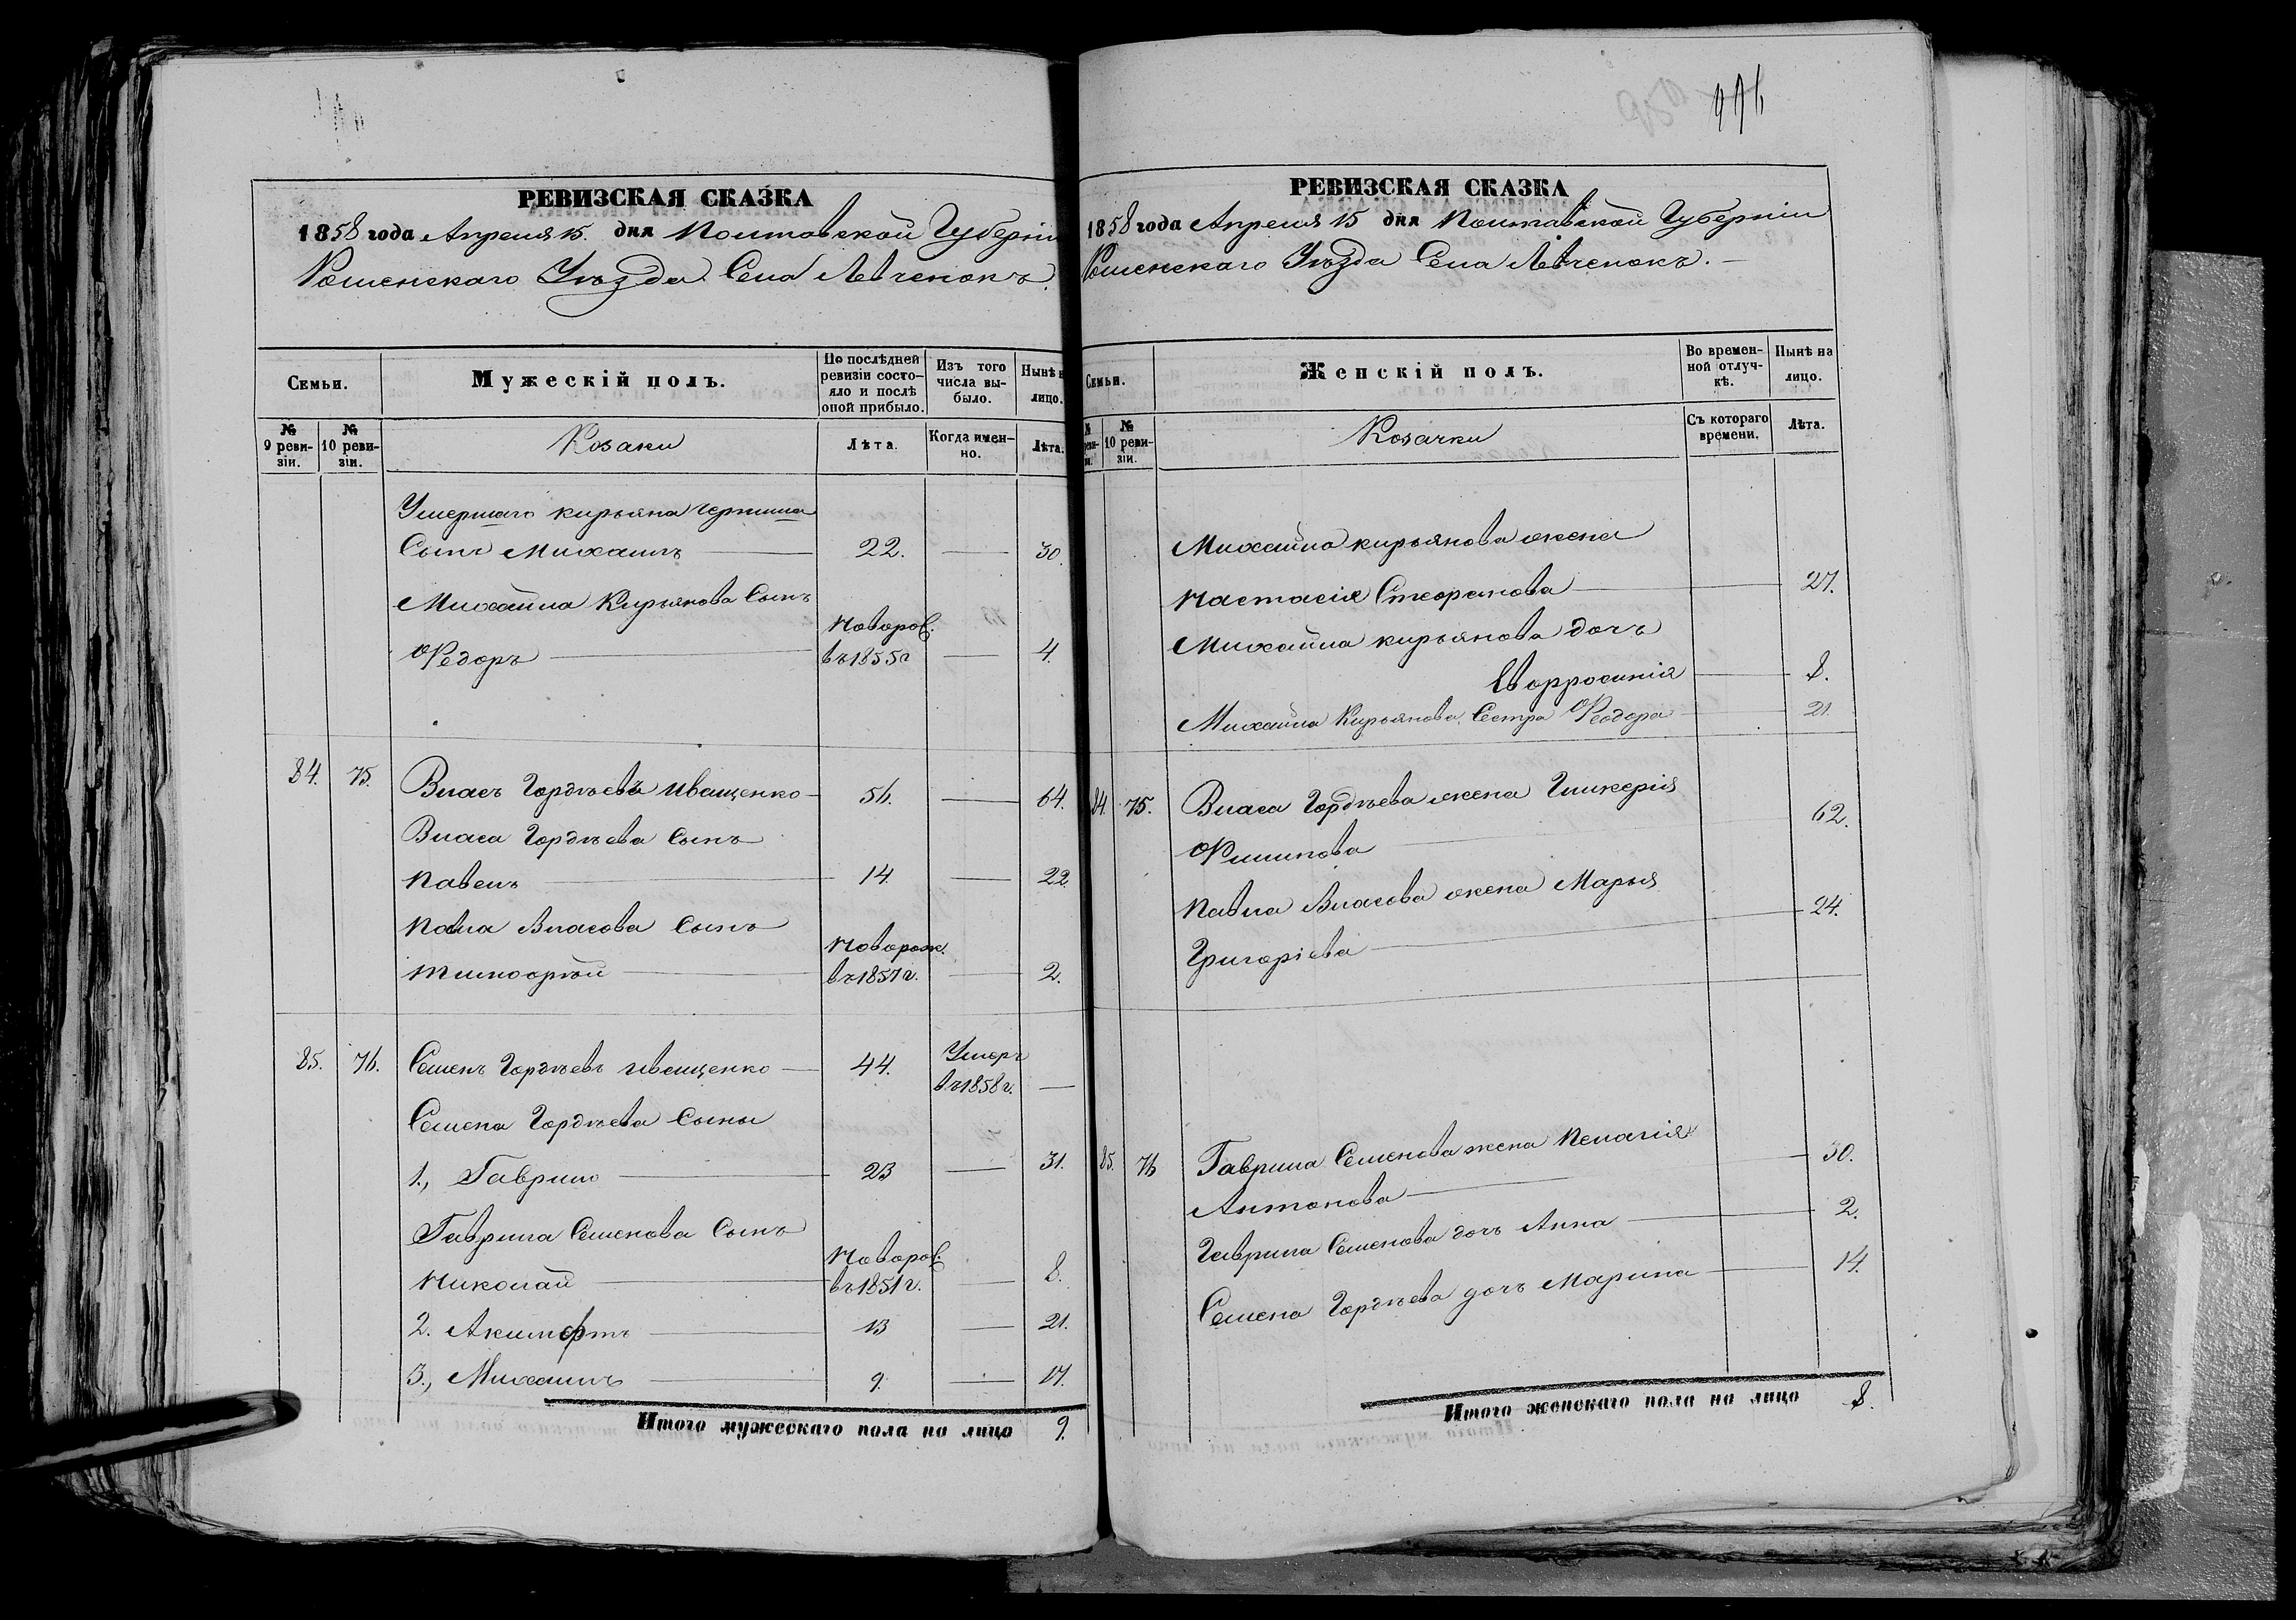 РЕВИЗСКАЯ СКАЗКА
1858 года Апреля 15. дня Полтавской Губерніи
Роменскаго Уѣзда Села Лѣвченокъ.
Семьи.
Мужескій полъ.
По послѣдней ревизіи состояло и послѣ оной прибыло.
Изъ того числа выбыло.
Нынѣ на лицо.
№ 9 ревизіи.
№ 10 ревизіи.
Козаки
Лѣта.
Когда именно.
Лѣта.
Умершаго кирьяна
Сынъ Михаилъ 22. 30.
Михайла Кирьянова Сынъ
Федоръ Новорож. въ 1855г 4.
84. 75. Власъ Гордѣевъ Иващенко 56. 64.
Власа Гордѣева Сынъ
Павелъ 14 22.
Павла Власова Сынъ
Тимофѣй Новорож. въ 1857г. 2.
85. 76. Семенъ Гордѣевъ Иващенко 44. Умеръ въ 1858г. —
Семена Гордѣева Сыны
1., Гаврило 23 31.
Гаврила Семенова Сынъ
Николай Новорож. въ 1851г. 8.
2. Акинфтъ 13 21.
3., Михаилъ 9. 17.
Итого мужескаго пола на лицо 9.
РЕВИЗСКАЯ СКАЗКА
1858 года Апреля 15 дня Полтавской Губерніи
Роменскаго Уѣзда Села Лѣвченокъ.
Семьи.
Женскій полъ.
Во временной отлучкѣ.
Нынѣ на лицо.
№ 10 ревизіи.
Козачки
Съ котораго времени.
Лѣта.
Михайла кирьянова жена
Настасія Стефанова 27.
Михайла кирьянова дочь
Евфросинія 8.
Михайла Кирьянова Сестра Феодора 21.
84. 75. Власа Гордѣева жена Гликерія
Филипова 62.
Павла Власова жена Марья
Григоріева 24.
85. 76 Гаврила Семенова жена Пелагія
Антонова 30.
Гаврила Семенова дочь Анна 2.
Семена Гордѣева дочь Марина 14.
Итого женскаго пола на лицо 8.